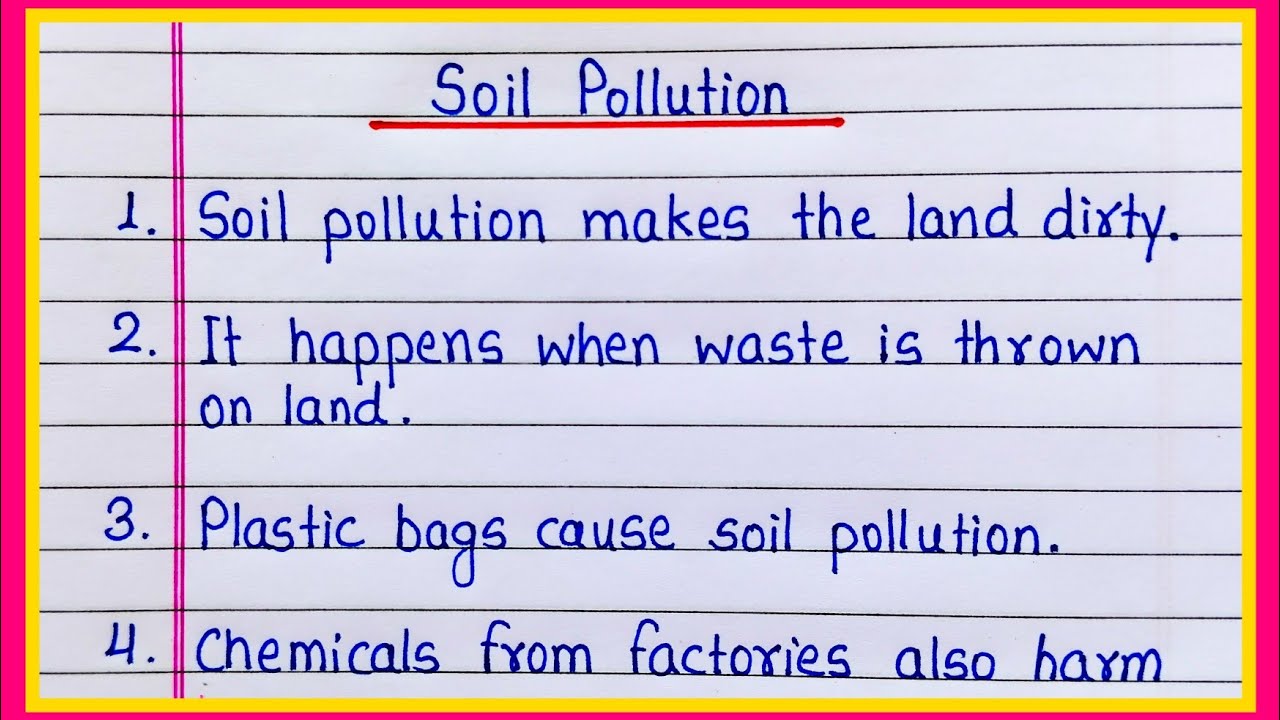 Soil Pollution
1. Soil pollution makes the land dirty.
2. It happens when waste is thrown
on land.
3. Plastic bags cause soil pollution.
4. Chemicals from factories also harm